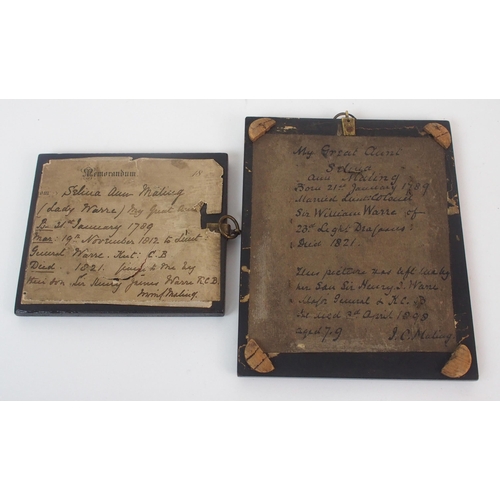 Memorandum 18
Selina Ann Maling
(Lady Warre) My Great Aunt
B. 21st January 1789
Mar. 19th November 1812 to Lieut
General Warre. Knt. C.B
Died 1821. given to me by
their son Sir Henry James Warre K.C.B.
Maling.
My Great Aunt
Selina
Ann Maling
Born 21st January 1789
Married Lieut Colonel
Sir William Warre of
23d Light Dragoons
Died 1821.
This picture was left me by
her Son Sir Henry J. Warre
General & K.C.B
he died 3d April 1898
aged 79
J. C. Maling